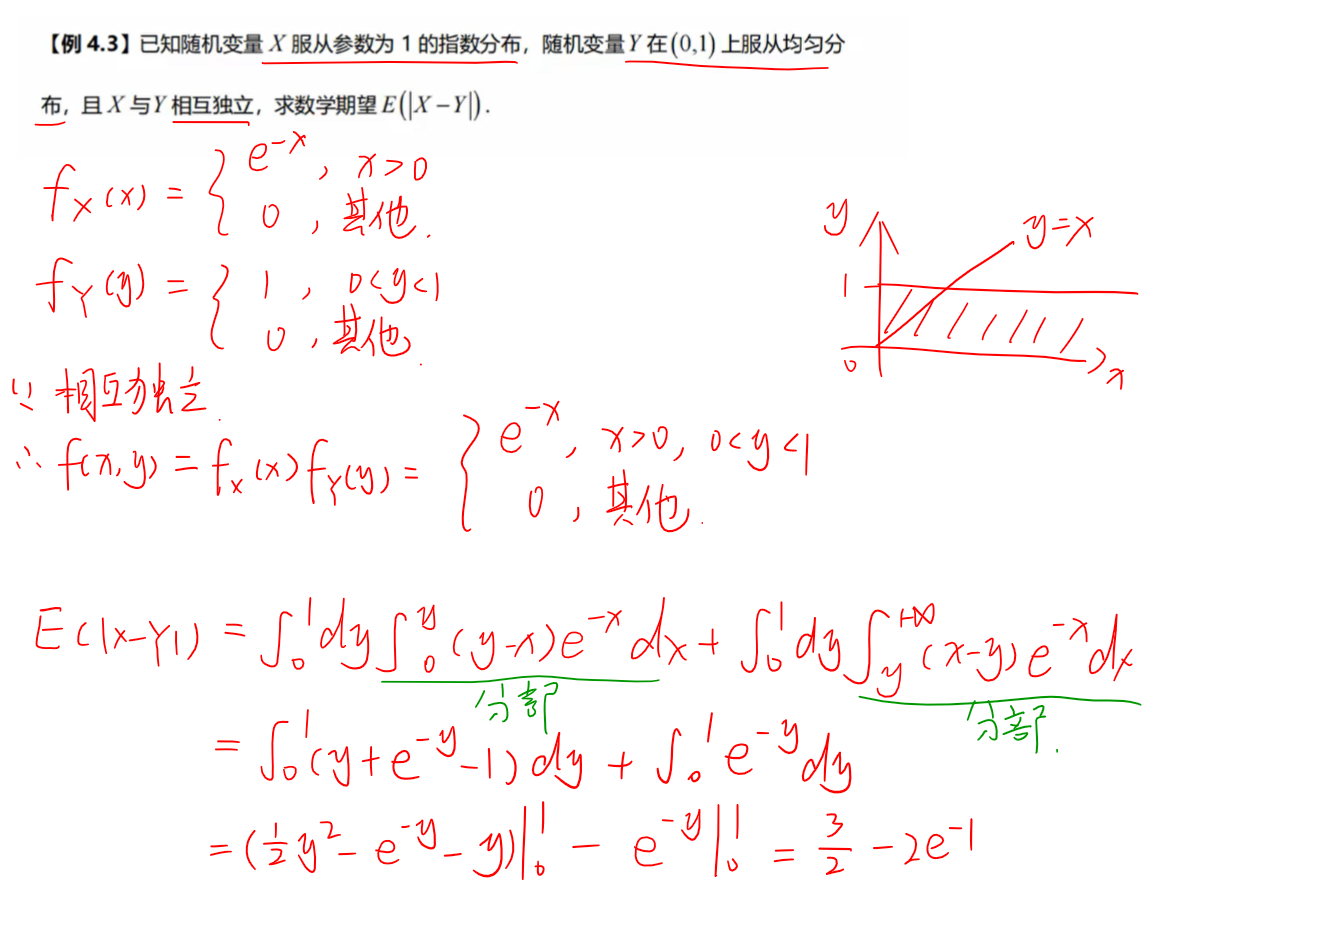 【例 4.3】已知随机变量 X 服从参数为 1 的指数分布，随机变量Y 在(0,1) 上服从均匀分
布，且 X 与Y 相互独立，求数学期望 E(|X − Y|).
f_X(x) = { e^{-x}, x>0
0, 其他.
f_Y(y) = { 1, 0<y<1
0, 其他.
y
y=x
1
0
x
∵ 相互独立.
∴ f(x,y) = f_X(x) f_Y(y) = { e^{-x}, x>0, 0<y<1
0, 其他.
E(|X-Y|) = ∫_0^1 dy ∫_0^y (y-x)e^{-x} dx + ∫_0^1 dy ∫_y^{+∞} (x-y)e^{-x} dx
分部 分部.
= ∫_0^1 (y+e^{-y}-1) dy + ∫_0^1 e^{-y} dy
= (\frac{1}{2}y^2 - e^{-y} - y)|_0^1 - e^{-y}|_0^1 = \frac{3}{2} - 2e^{-1}